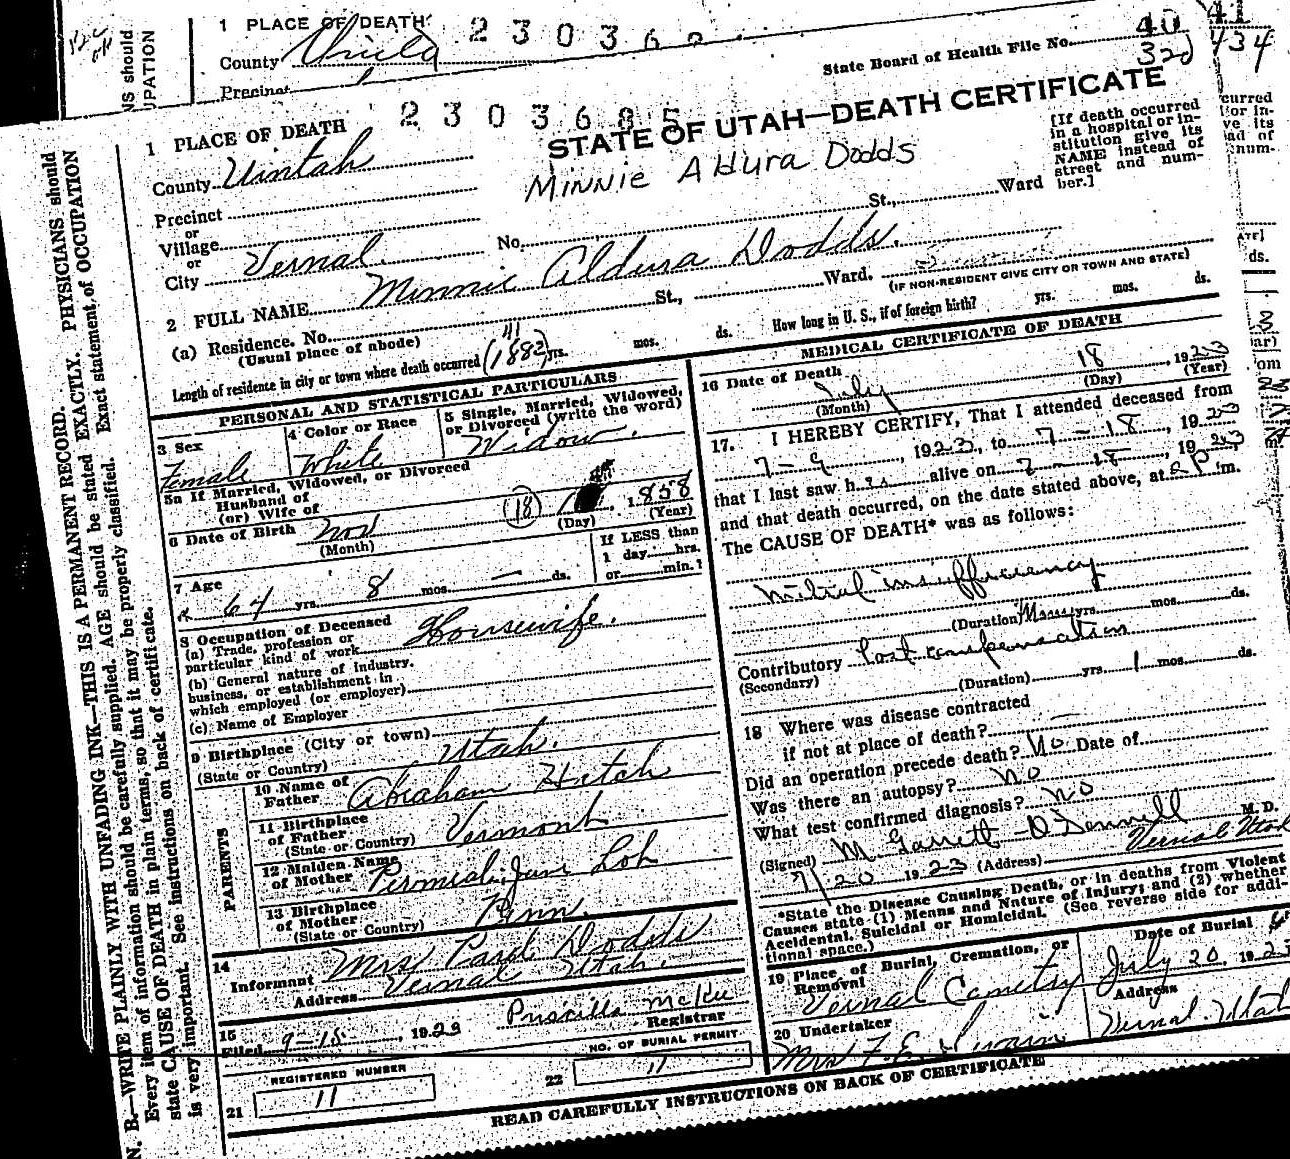 1 PLACE OF DEATH
230360
County
Precinct
State Board of Health File No. 40
41
32d
434
2303685
STATE OF UTAH—DEATH CERTIFICATE
1 PLACE OF DEATH
County Uintah
Minnie Aldura Dodds
[If death occurred
in a hospital or in-
stitution give its
NAME instead of
street and num-
ber.]
Precinct
or
Village
or
City Vernal.
No. St., Ward
2 FULL NAME Minnie Aldura Dodds.
(a) Residence. No. St., Ward.
(Usual place of abode)
(IF NON-RESIDENT GIVE CITY OR TOWN AND STATE)
Length of residence in city or town where death occurred 41 (1882) yrs. mos. ds. How long in U. S., if of foreign birth? yrs. mos. ds.
PERSONAL AND STATISTICAL PARTICULARS
3 Sex
Female
4 Color or Race
White
5 Single, Married, Widowed,
or Divorced (write the word)
Widow.
5a If Married, Widowed, or Divorced
Husband of
(or) Wife of
6 Date of Birth Nov (18) 1858
(Month) (Day) (Year)
7 Age
64 yrs. 8 mos. — ds.
If LESS than
1 day hrs.
or min.?
8 Occupation of Deceased
(a) Trade, profession or
particular kind of work Housewife.
(b) General nature of industry,
business, or establishment in
which employed (or employer)
(c) Name of Employer
9 Birthplace (City or town)
(State or Country) Utah.
PARENTS
10 Name of
Father Abraham Hatch
11 Birthplace
of Father
(State or Country) Vermont
12 Maiden Name
of Mother Permelia Jane Lott
13 Birthplace
of Mother
(State or Country) Penn.
14
Informant Mrs Pard Dodds
Address Vernal Utah.
15
Filed 9-18, 1923 Priscilla McKee
Registrar
REGISTERED NUMBER
21 11
NO. OF BURIAL PERMIT
22 11
MEDICAL CERTIFICATE OF DEATH
16 Date of Death
July 18, 1923
(Month) (Day) (Year)
17. I HEREBY CERTIFY, That I attended deceased from
7-9, 1923, to 7-18, 1923
that I last saw her alive on 7-18, 1923
and that death occurred, on the date stated above, at 2 P. m.
The CAUSE OF DEATH* was as follows:
Mitral insufficiency
(Duration) Many yrs. mos. ds.
Contributory Lost compensation
(Secondary)
(Duration) yrs. 1 mos. ds.
18 Where was disease contracted
if not at place of death? —
Did an operation precede death? No Date of
Was there an autopsy? No
What test confirmed diagnosis? No
(Signed) M. Garrett O'Donnell M. D.
7/20 1923 (Address) Vernal Utah
*State the Disease Causing Death, or in deaths from Violent
Causes state (1) Means and Nature of Injury; and (2) whether
Accidental, Suicidal or Homicidal. (See reverse side for addi-
tional space.)
19 Place of Burial, Cremation, or
Removal
Vernal Cemetry
Date of Burial
July 20, 1923
20 Undertaker
Mrs F. E. Swain
Address
Vernal. Utah
READ CAREFULLY INSTRUCTIONS ON BACK OF CERTIFICATE
N. B.—WRITE PLAINLY WITH UNFADING INK—THIS IS A PERMANENT RECORD.
Every item of information should be carefully supplied. AGE should be stated EXACTLY. PHYSICIANS should
state CAUSE OF DEATH in plain terms, so that it may be properly classified. Exact statement of OCCUPATION
is very important. See instructions on back of certificate.